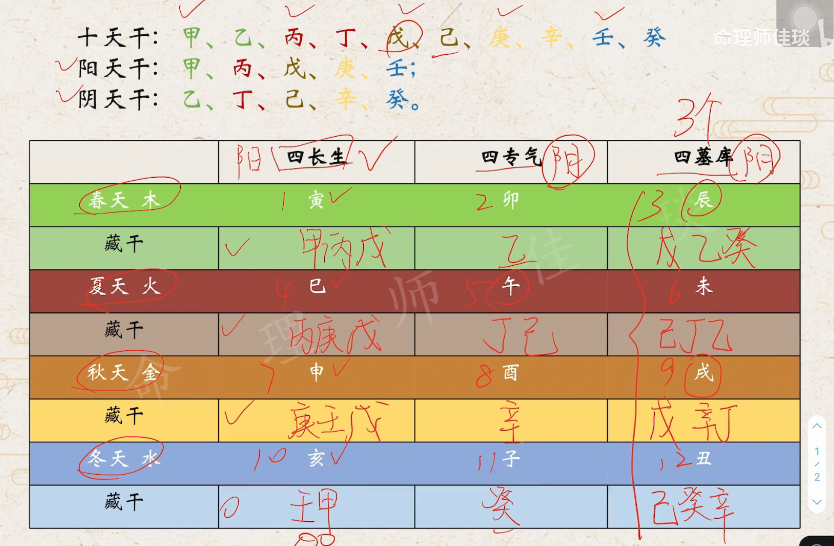 十天干：甲、乙、丙、丁、戊、己、庚、辛、壬、癸
命理师佳琰
阳天干：甲、丙、戊、庚、壬；
阴天干：乙、丁、己、辛、癸。
3个
阳 四长生 四专气 阴 四墓库 阴
春天 木 1 寅 2 卯 3 辰
藏干 甲丙戊 乙 戊乙癸
夏天 火 4 巳 5 午 6 未
藏干 丙庚戊 丁己 己丁乙
秋天 金 7 申 8 酉 9 戌
藏干 庚壬戊 辛 戊辛丁
冬天 水 10 亥 11 子 12 丑
藏干 壬甲 癸 己癸辛
命理师佳琰
1/2